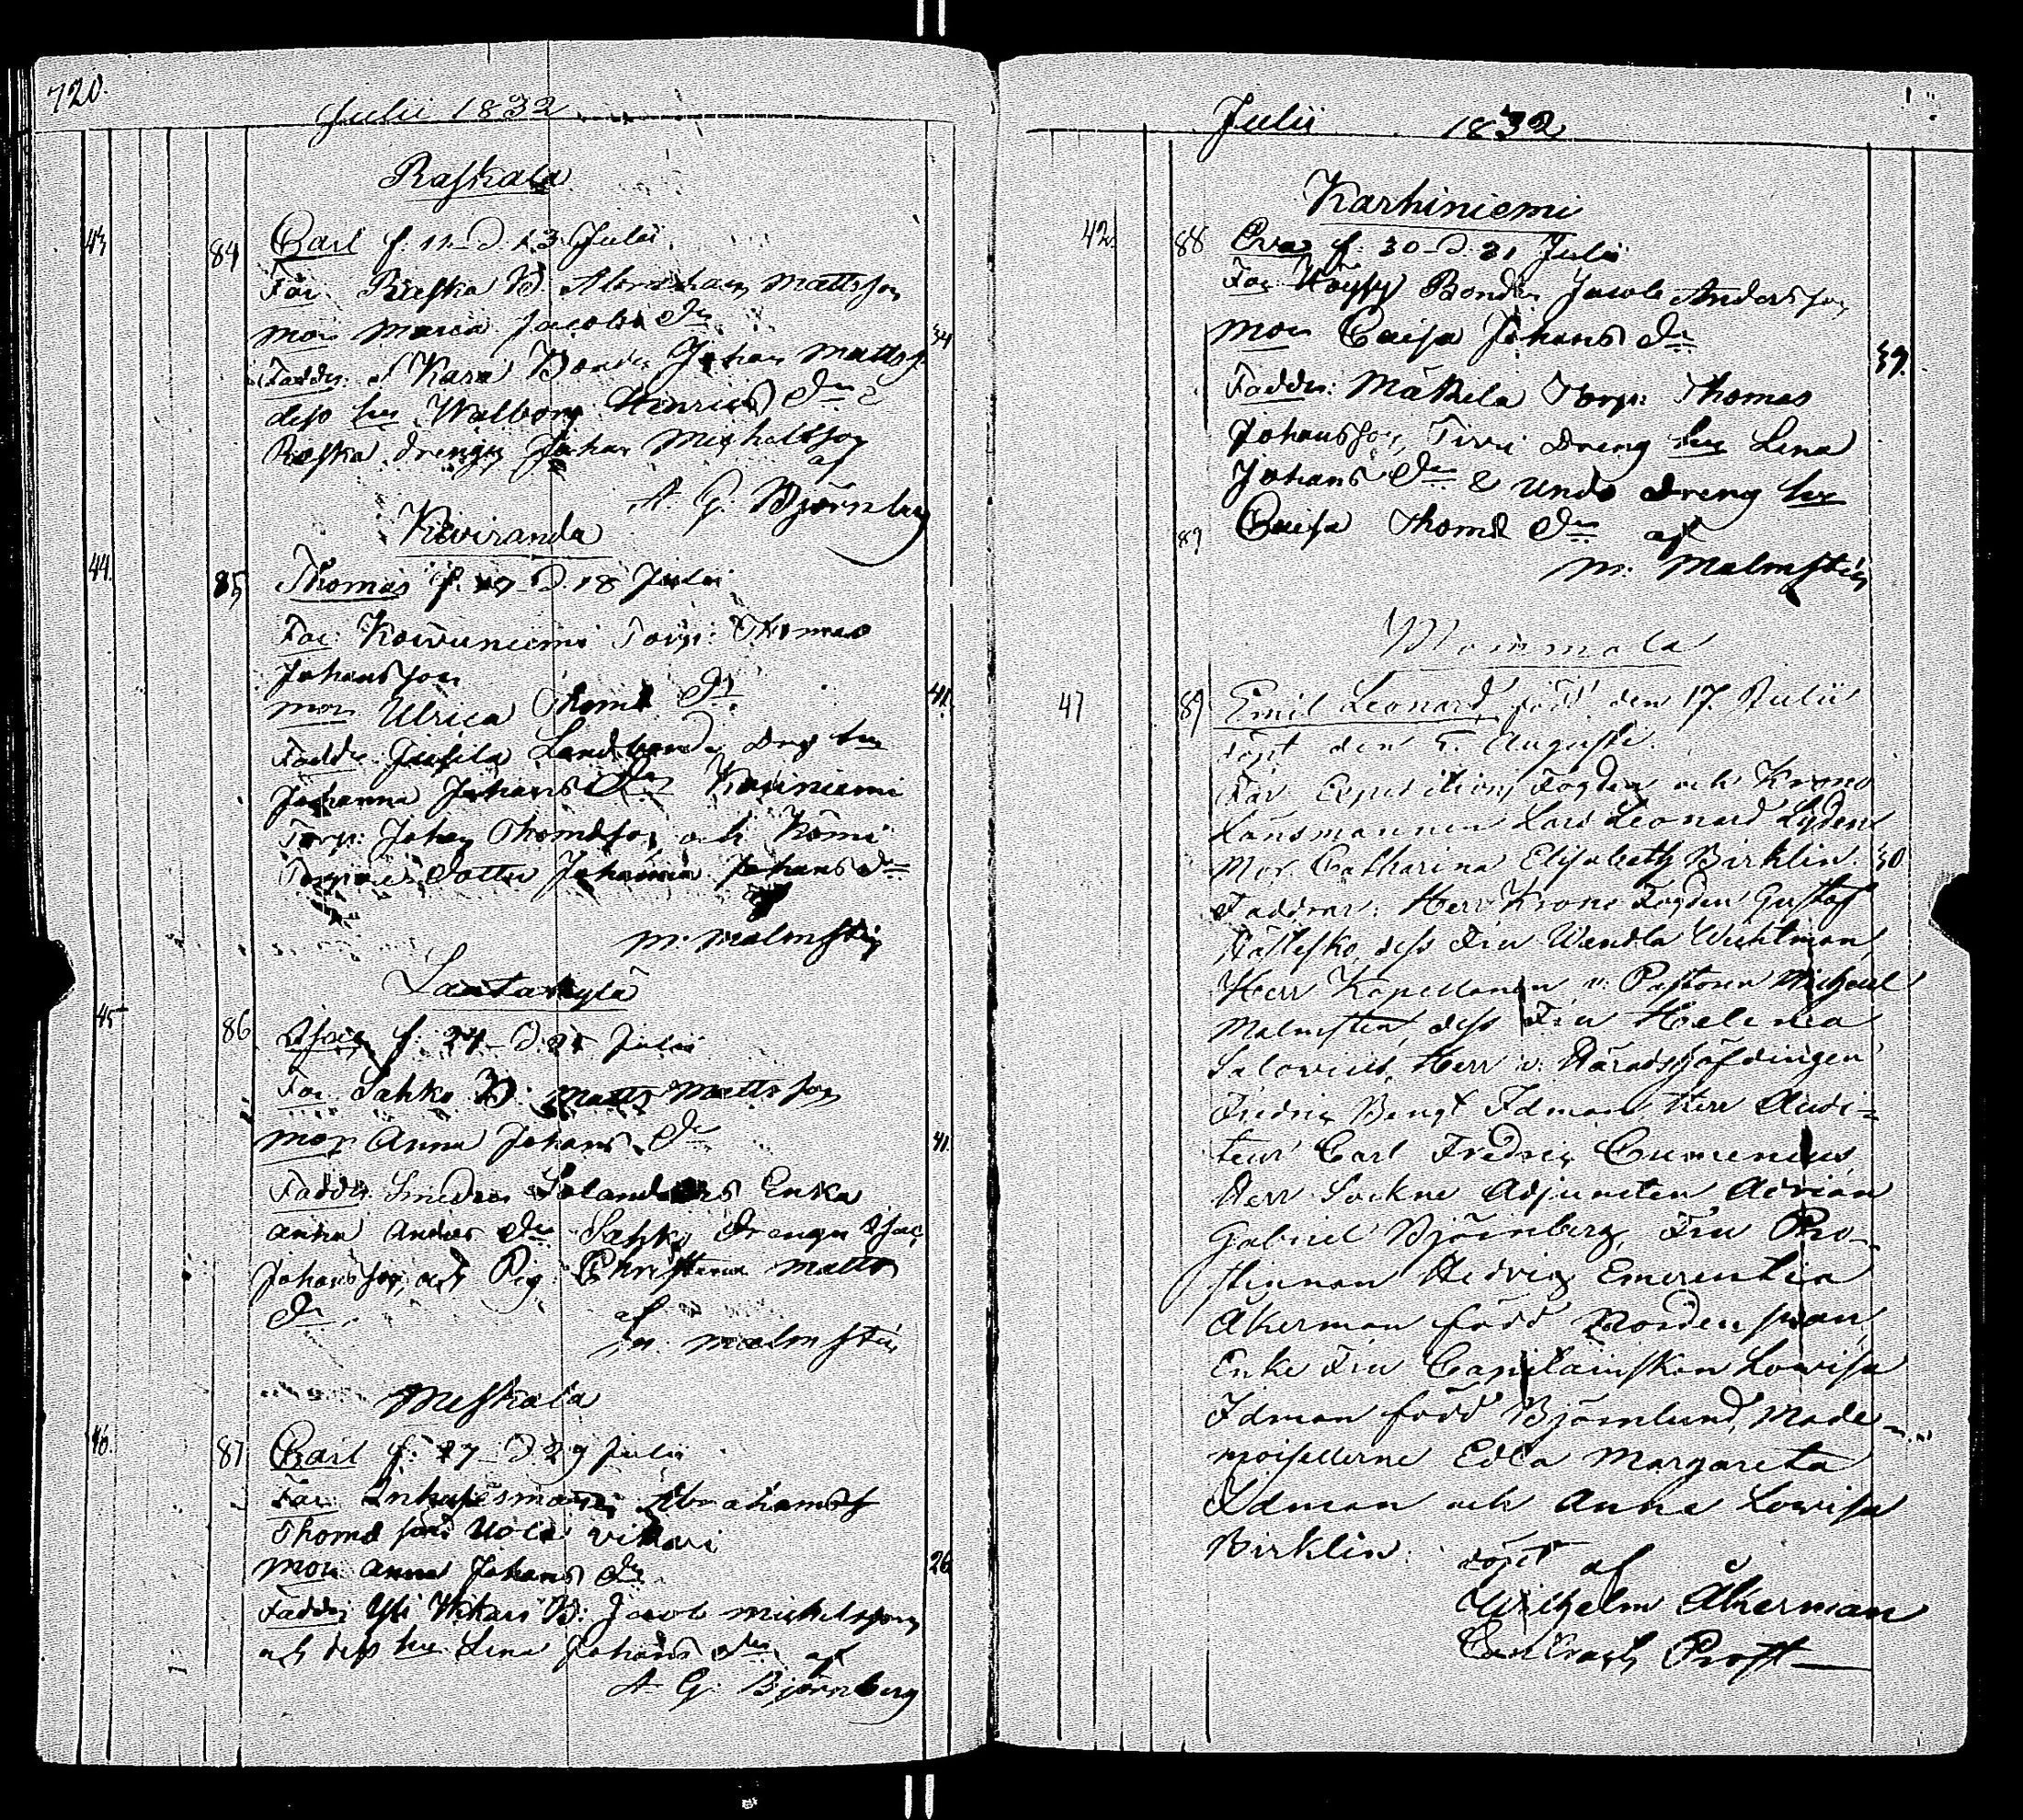 720.
Julii 1832
Raskala
43 84 Carl f. 11 D. 13 Julii
Far: Rieska B. Abraham Mattsson
mor Maria Jacobs dr
Faddr: Kara Bonde Johan Matts s. 34
dess hu Walborg Henrics dr &
Rieska drengen Johan Michaelsson
af
A. G. Björnberg
Kiviranda
44. 85 Thomas f. 17 D. 18 Julii
Far: Torp: Thomas
Johansson
mor Ulrica Thomæ dr 41.
Faddr: Landbonde
Johanna Johans dr
Torp: Johan Thomæson och
dotter Johanna Johans dr
af
M. Malmstén
Lautakylä
45 86 f. 24 D. 25 Julii
Far Sahko B: Matts Mattsson
mor Anna Johans dr 41.
Faddr Smeden Enka
Anna Anders dr Sahko drengen Isac
Johansson, och Pig: Christina Matts
dr
af
M. Malmstén
Meskala
46. 87 Carl f. 27 D. 29 Julii
Far: Abrahams
Thomæ son Uola Vikari
mor Anna Johans dr 26
Faddr Yli Wikari B: Jacob Michelsson
och dess hu Lena Johans dr af
A. G. Björnberg
Julii 1832
Karhiniemi
42. 88 Eva f. 30 D. 31 Julii
Far Bonden Jacob Andersson
mor Caisa Johans dr 39.
Faddr: Mäkkila Torp: Thomas
Johansson, Tirri dreng hu Lena
Johans dr & Undo dreng hu
89 Caisa Thomæ dr af
M. Malmstén
Mommola
47 89 Emil Leonard, född den 17. Julii
döpt den 5. Augusti.
Far Expeditions Fogden och Krono
Länsmannen Lars Leonard Lydén
Mor. Catharina Elisabeth Birklin. 30
Faddrar: Herr Krono Fogden Gustaf
dess Fru Wendla
Herr Kapellanen v. Pastoren Michael
Malmstén, dess Fru Helena
Salovius, Herr v. Häradshöfdingen
Fredric Bengt Idman Herr Audi-
teur Carl Fredric Cumenius,
Herr Sockne Adjuncten Adrian
Gabriel Björnberg, Fru Pro-
stinnan Hedvig Emerentia
Åkerman född Nordensvan,
Enke Fru Capitainskan Lowisa
Idman född Björnlund, Made-
moisellerne Edla Margareta
Idman och Anna Lowisa
Birklin. döpt af
Wilhelm Åkerman
Prost